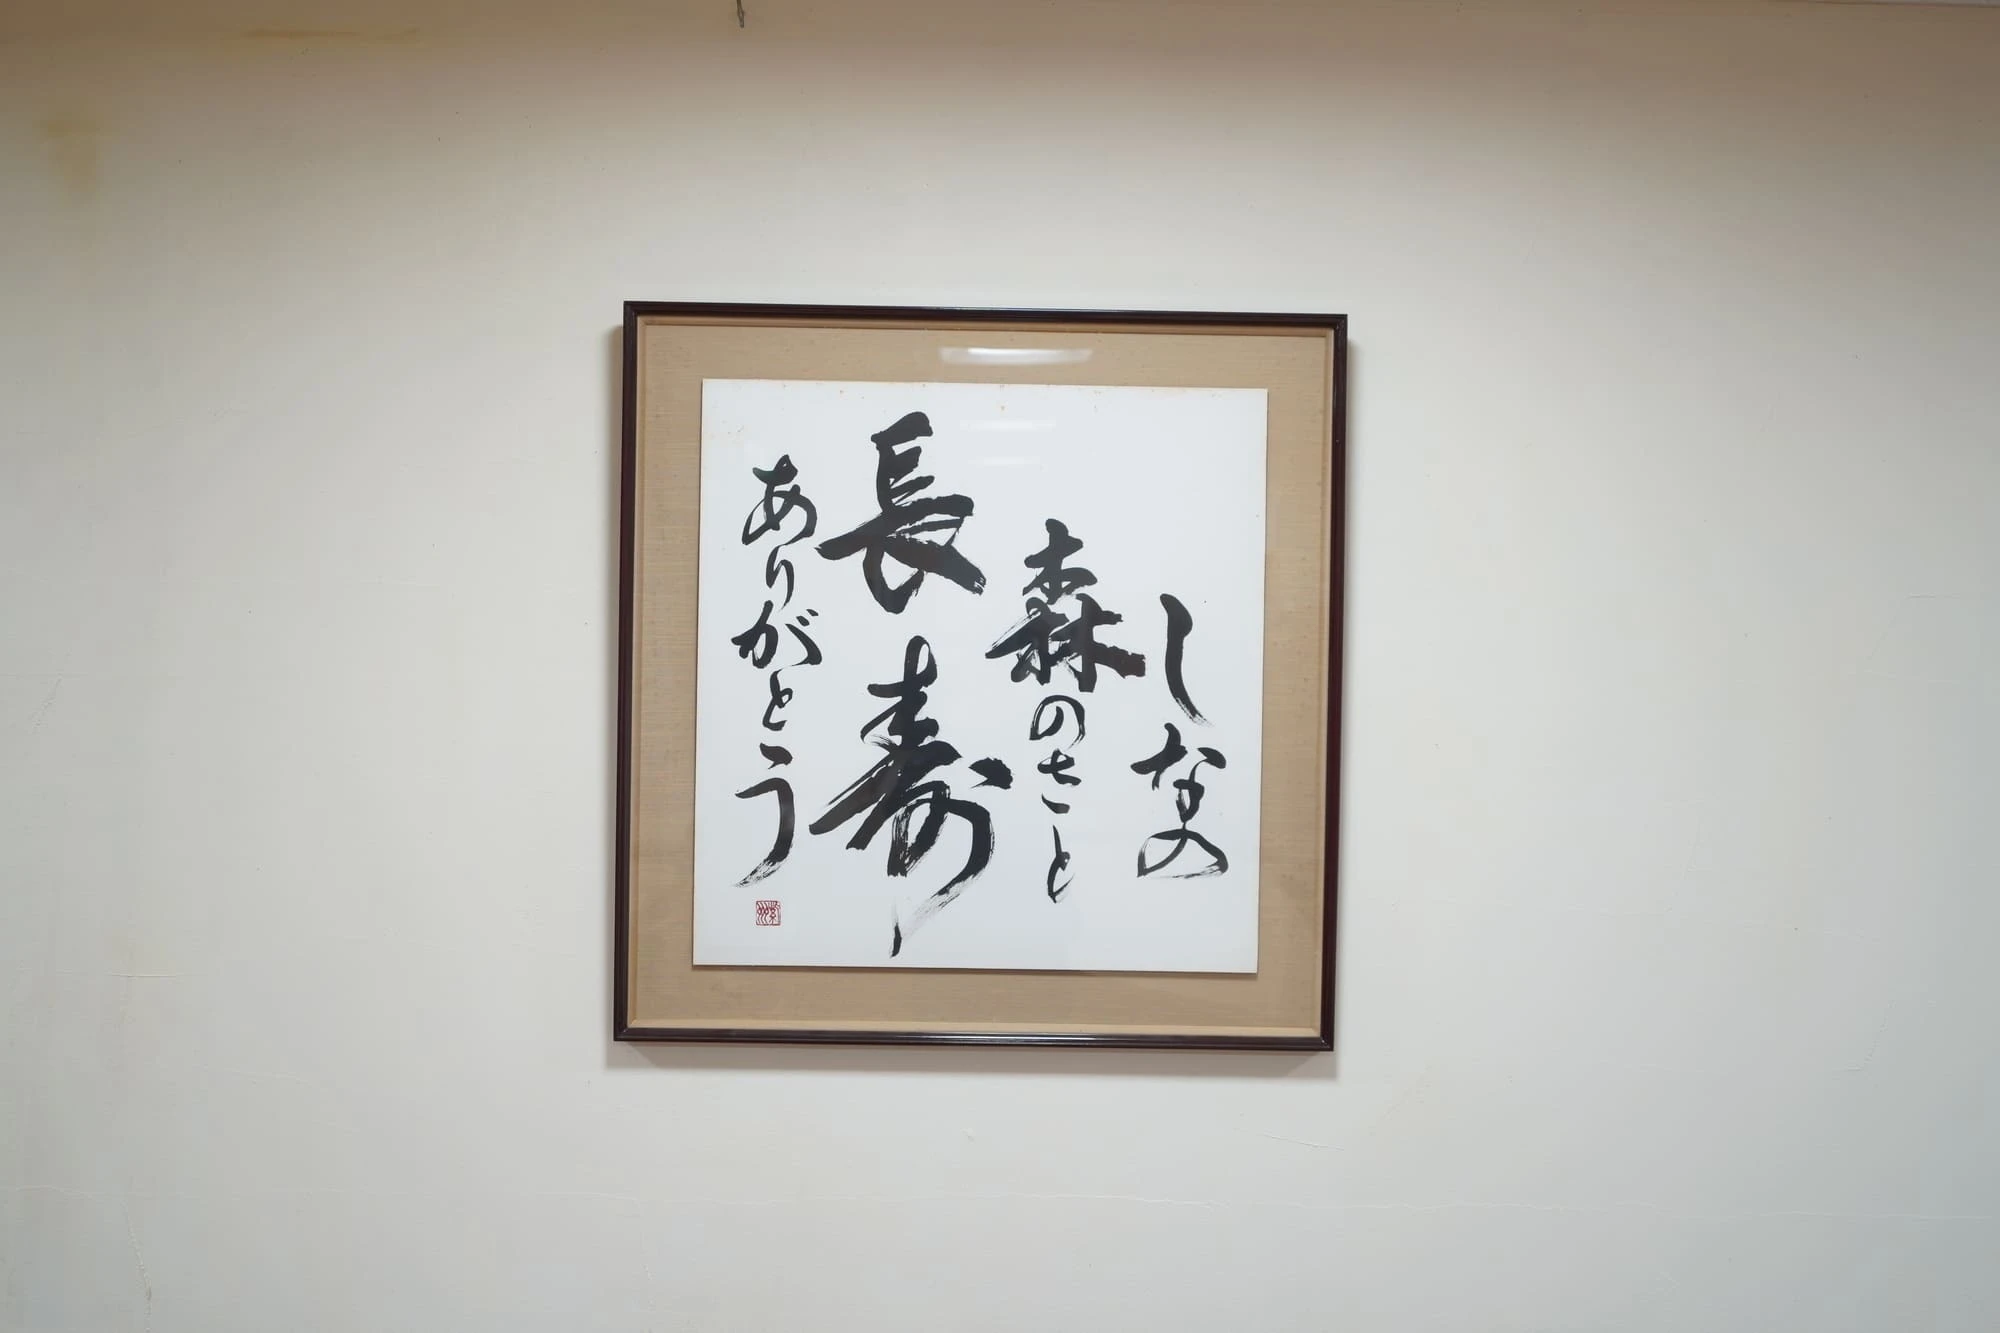 しなの
森のさと
長寿
ありがとう